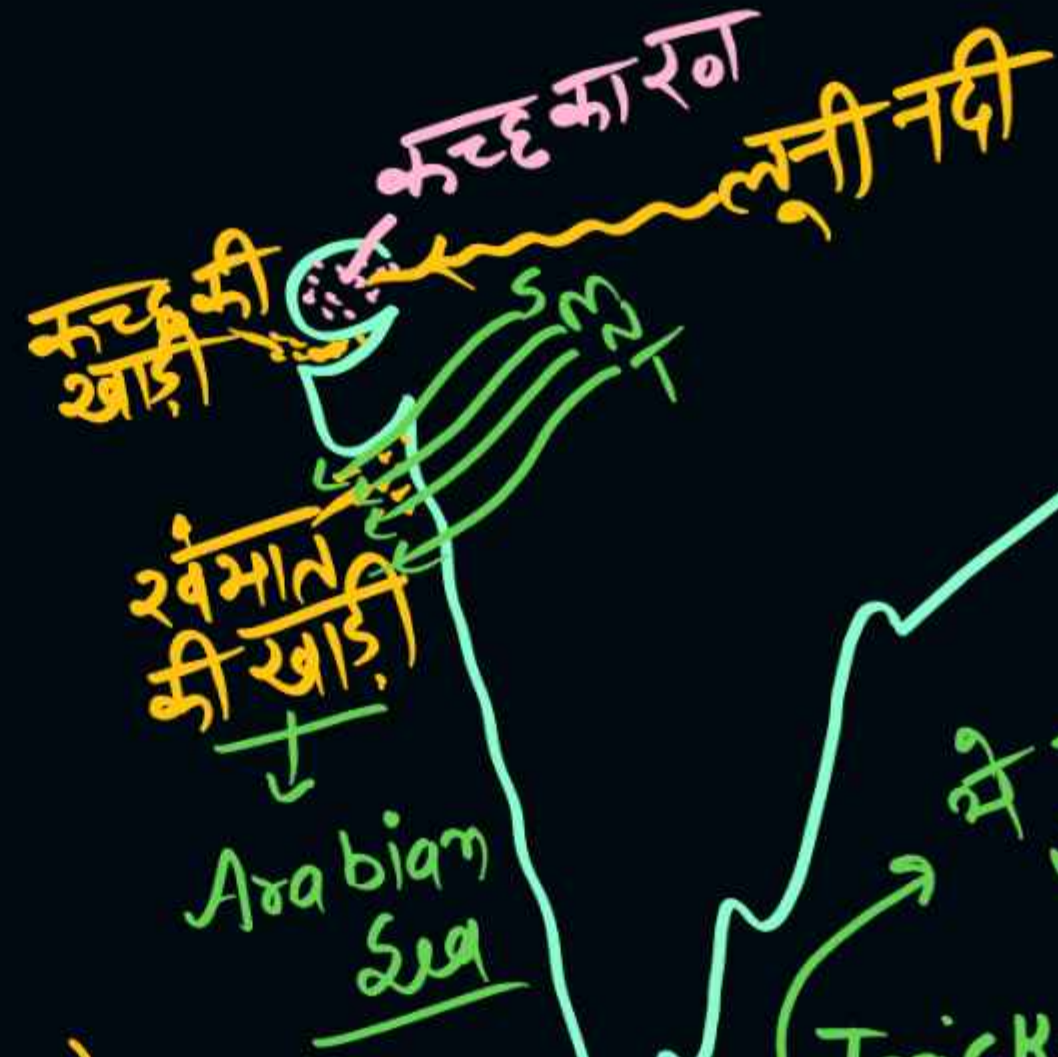 कच्छ का रन
लूनी नदी
कच्छ की
खाड़ी
S
M
N
T
खंभात
की खाड़ी
Arabian
Sea
ये
Trick